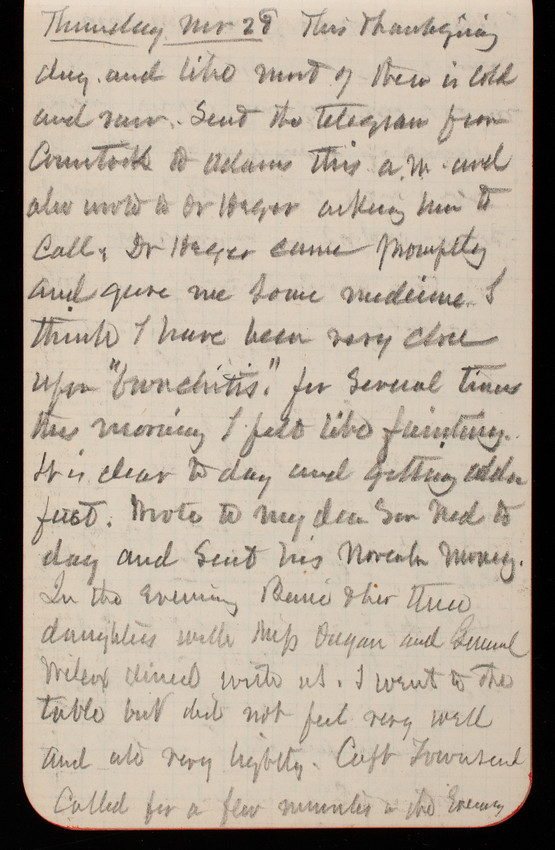 Thursday Nov 28 This Thanksgiving
day and like most of them is cold
and raw. Sent the telegram from
Comstock to Adams this a.m. and
also wrote to Dr Heger asking him to
call. Dr Heger came promptly
and gave me some medicine. I
think I have been very close
upon "bronchitis." for several times
this morning I felt like fainting.
It is clear to day and getting colder
fast. Wrote to my dear Son Ned to
day and sent his November money.
In the Evening & her three
daughters with Miss and General
Wilcox dined with us. I went to the
table but did not feel very well
and ate very lightly. Capt Townsend
Called for a few minutes in the Evening